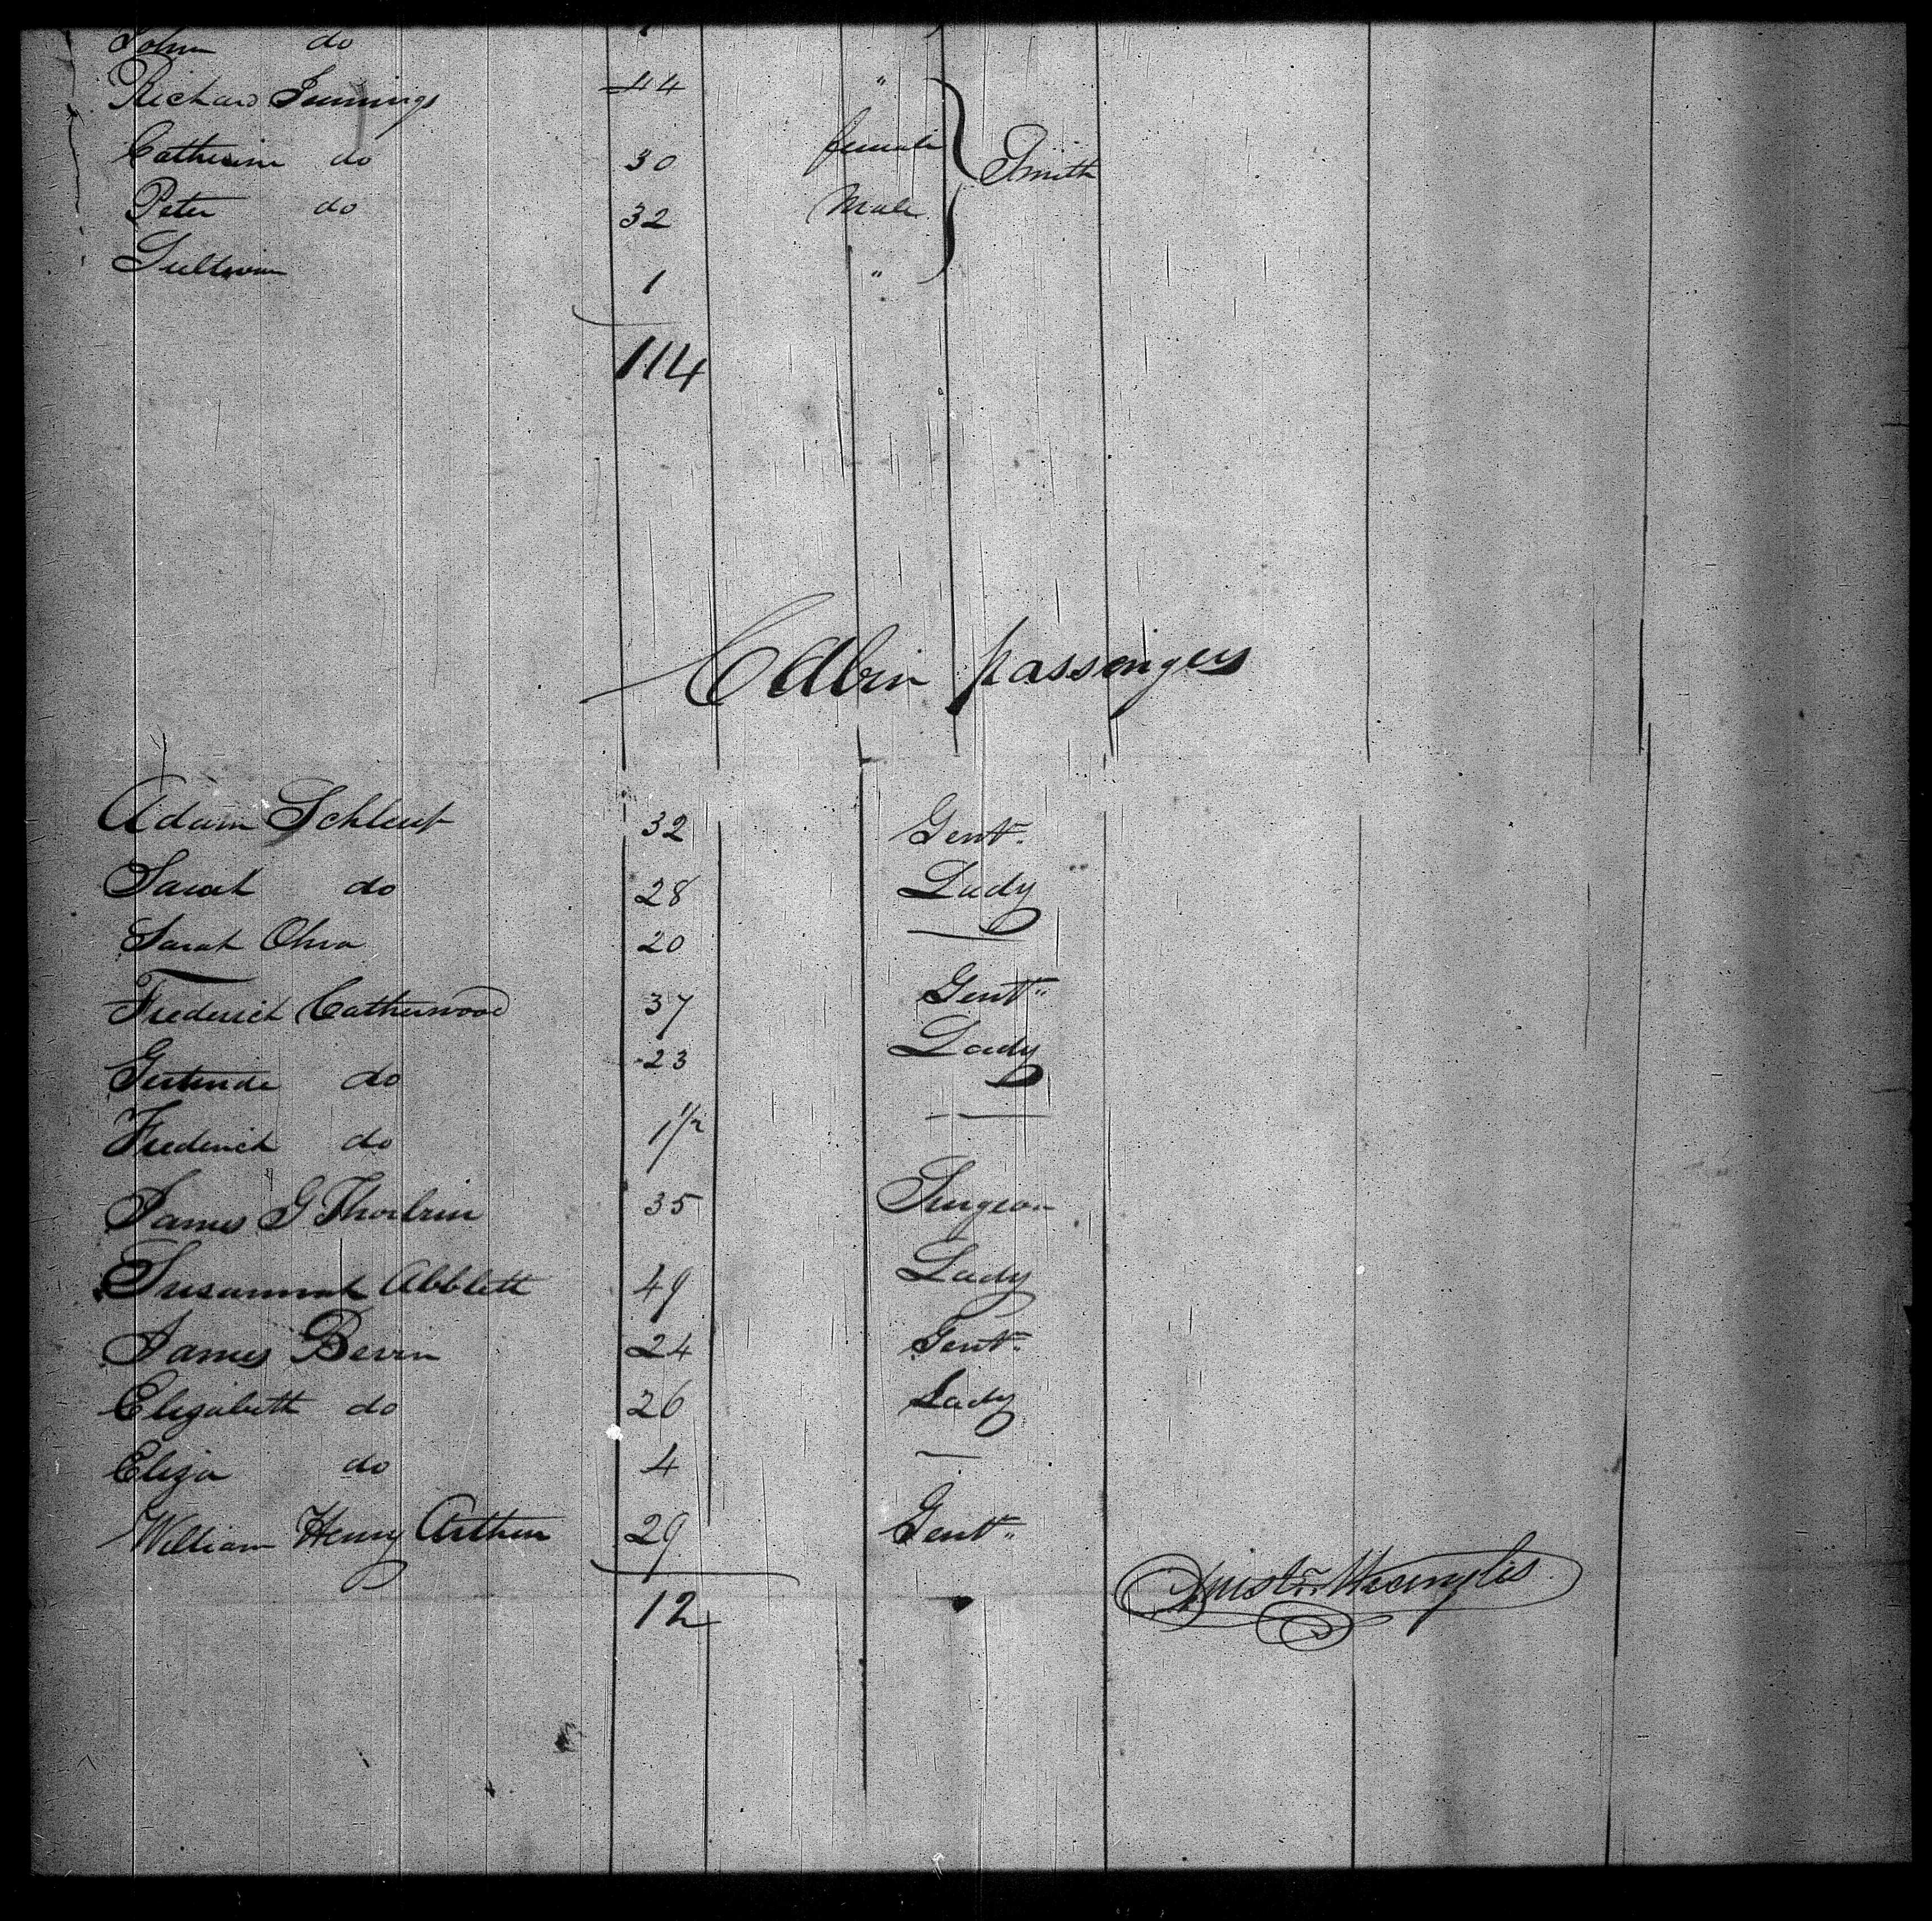 John do
Richard Jennings 44 "
Catherine do 30 female Smith
Peter do 32 Male
Sullivan 1 "
114
Cabin passengers
Adam 32 Gentn.
Sarah do 28 Lady
Sarah 20 —
Frederick Catherwood 37 Gentn"
Gertrude do 23 Lady
Frederick do 1 1/2 —
James G 35 Surgeon
Susannah Abblett 49 Lady
James Beven 24 Gentn.
Elizabeth do 26 Lady
Eliza do 4 —
William Henry Arthur 29 Gentn"
12